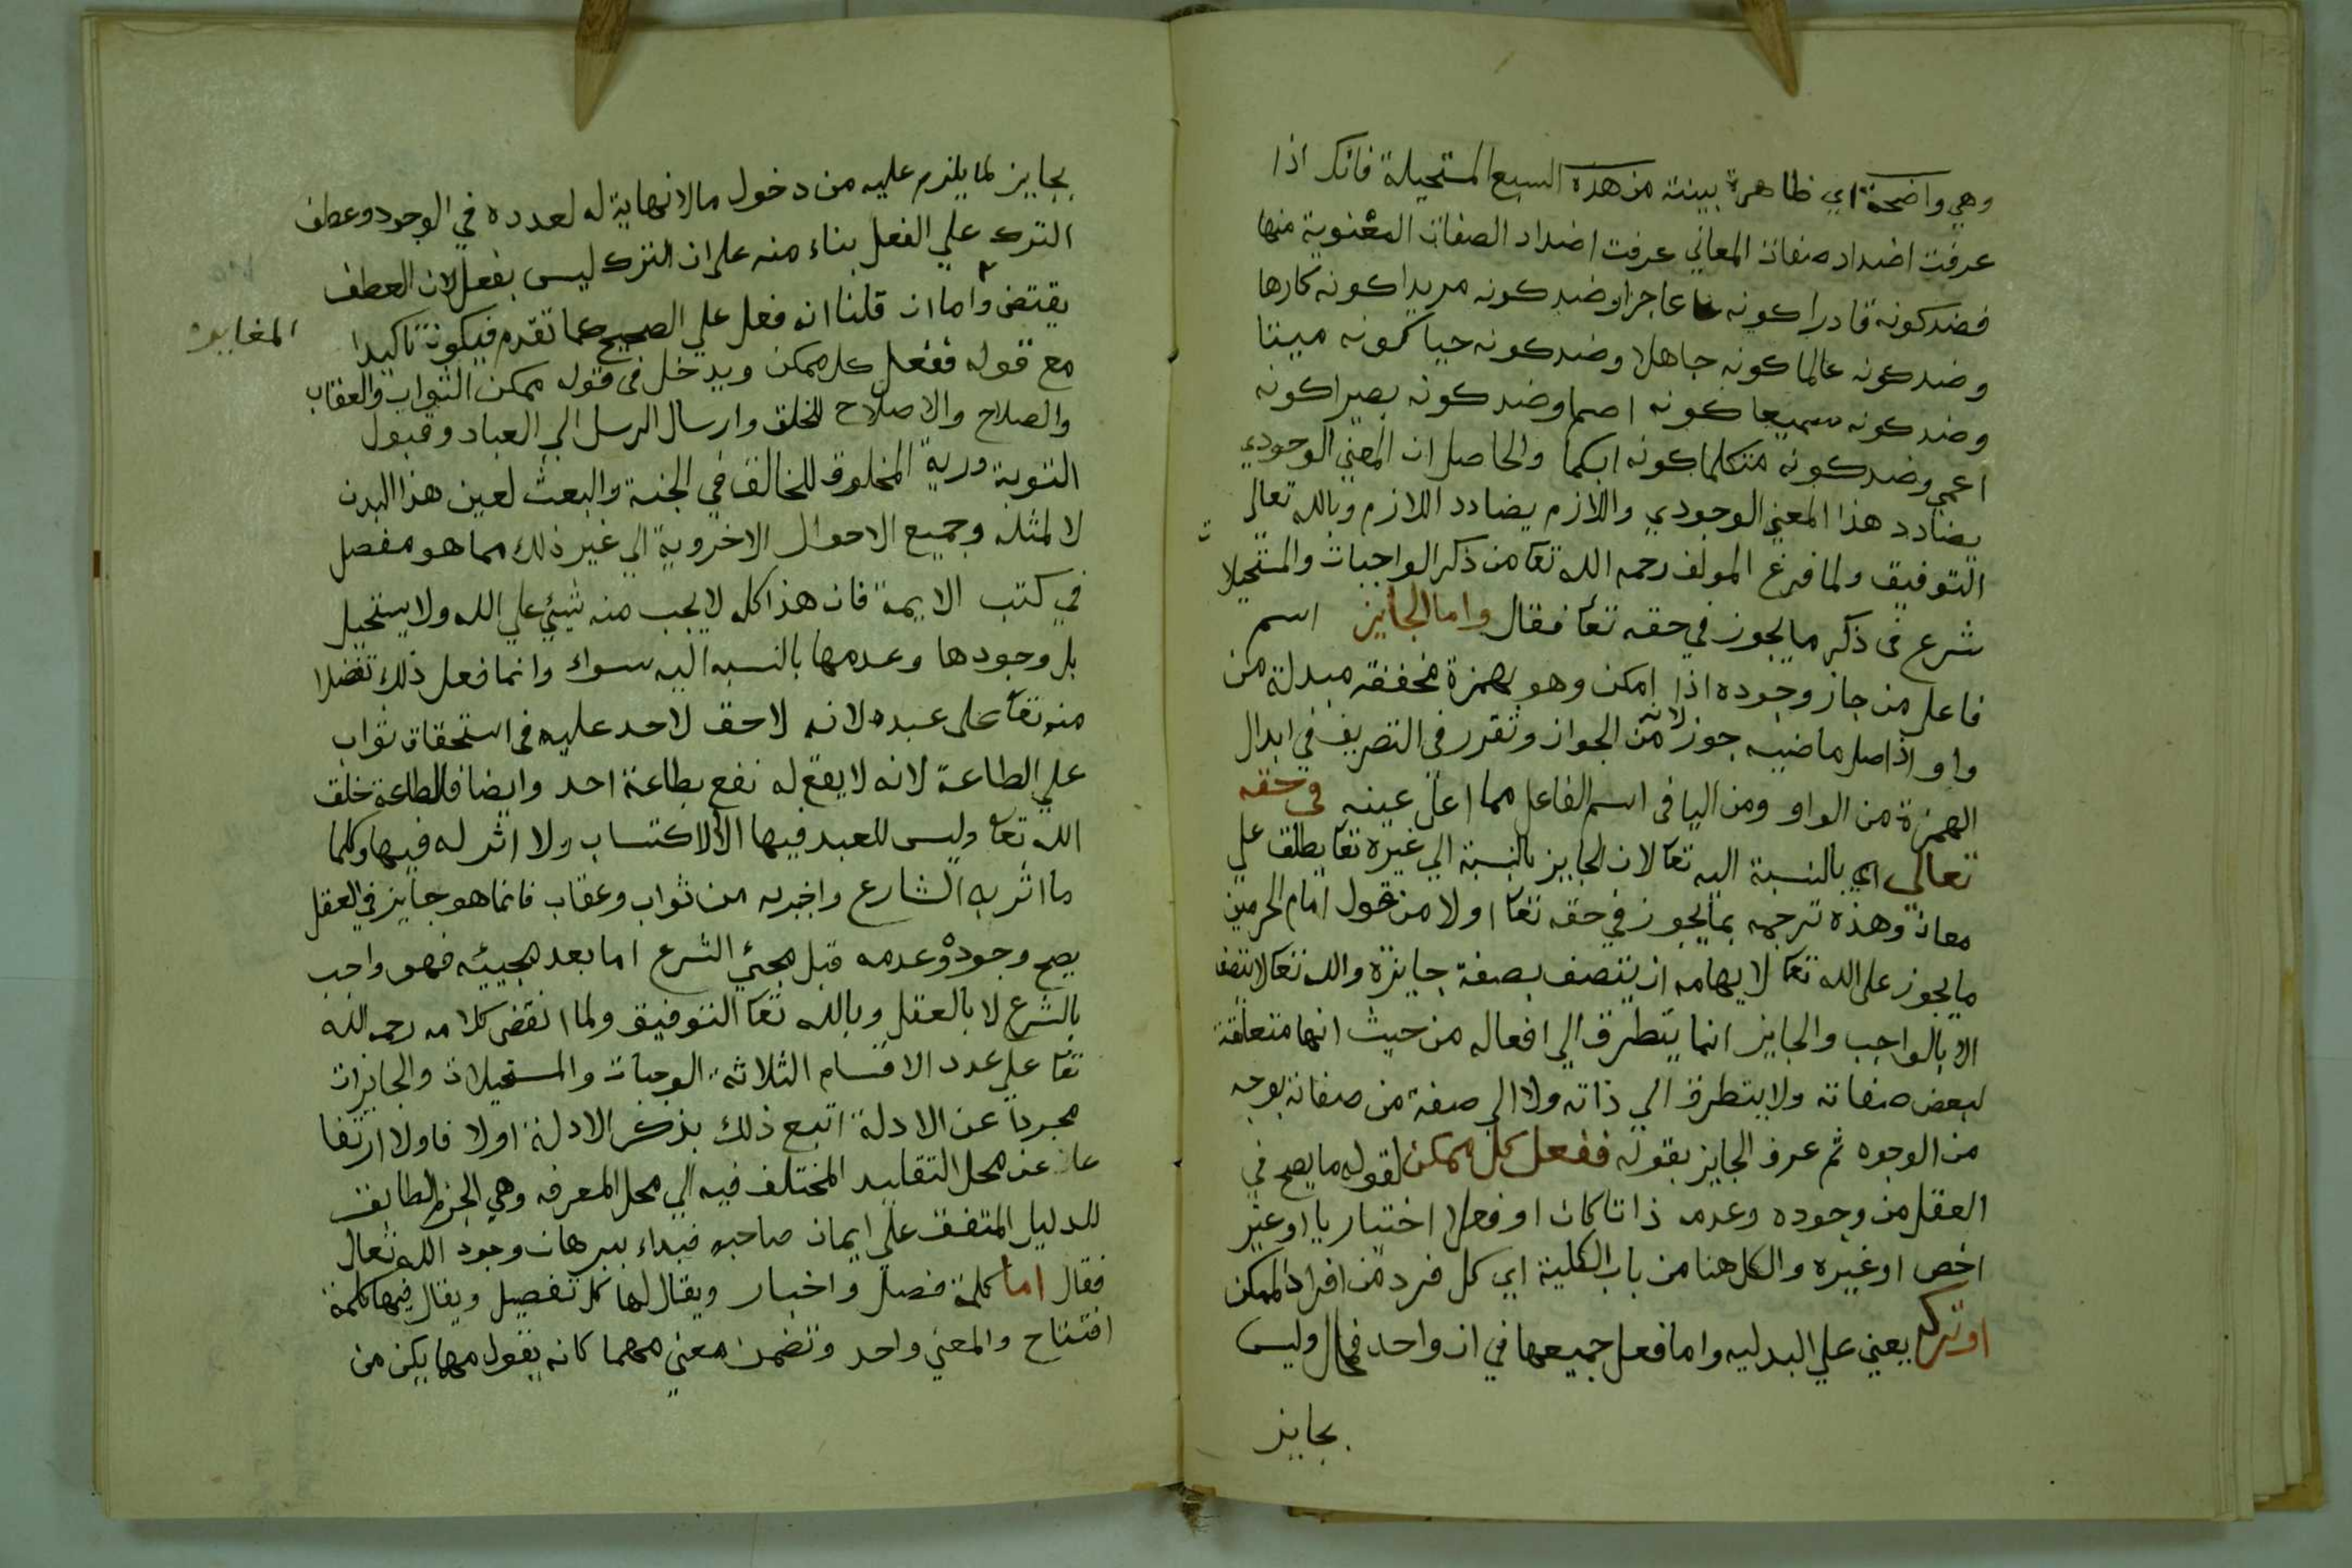 وهي واضحة اي ظاهرة بينته من هذه السبع المستحيلة فانك اذا
عرفت اضداد صفات المعاني عرفت اضداد الصفات المعنوية منها
فضد كونه قادرا كونه عاجزا وضد كونه مريدا كونه كارها
وضد كونه عالما كونه جاهلا وضد كونه حيا كونه ميتا
وضد كونه سميعا كونه اصما وضد كونه بصيرا كونه
اعمي وضد كونه متكلما كونه ابكما والحاصل ان المعني الوجودي
يضادد هذا المعني الوجودي واللازم يضادد اللازم وبالله تعالي
التوفيق ولما فرغ المولف رحمه الله تعا من ذكر الواجبات والمستحيلا ت
شرع في ذكر ما يجوز في حقه تعا فقال واما الجايز اسم
فاعل من جاز وجوده اذا امكن وهو بهمزة مخففة مبدلة من
واو اذ اصل ماضيه جوز لانه من الجواز وتقرر في التصريف في ابدال
الهمزة من الواو ومن اليا في اسم الفاعل مما اعل عينه في حقه
تعالي اي بالنسبة اليه تعا لان الجايز بالنسبة الي غيره تعا يطلق علي
معان وهذه ترجمه بما يجوز في حقه تعا اولا من قول امام الحرمين
ما يجوز علي الله تعا لايهامه ان يتصف بصفة جايزة والله تعا لا يتصف
الا بالواجب والجايز انما يتطرق الي افعاله من حيث انها متعلقة
لبعض صفاته ولا يتطرق الي ذاته ولا الي صفة من صفاته بوجه
من الوجوه ثم عرف الجايز بقوله ففعل كل ممكن لقوله ما يصح في
العقل من وجوده وعدمه ذاتا كان او فعلا اختياريا او غير
اخص او غيره والكل هنا من باب الكلية اي كل فرد من افراد الممكن
او تركه يعني علي البدليه واما فعل جميعها في ان واحد فمحال وليس
بجايز
بجايز لما يلزم عليه من دخول مالا نهاية له لعدده في الوجود وعطف
الترك علي الفعل بناء منه علي ان الترك ليس بفعل لان العطف
يقتضي واما ان قلنا انه فعل علي الصحيح كما تقدم فيكون تاكيدا
المغايره
مع قوله ففعل كل ممكن ويدخل في قوله ممكن الثواب والعقاب
والصلاح والاصلاح للخلق وارسال الرسل الي العباد وقبول
التوبة ورية المخلوق للخالق في الجنة والبعث لعين هذا البدن
لا لمثله وجميع الاحوال الاخروية الي غير ذلك مما هو مفصل
في كتب الايمة فان هذا كله لا يجب منه شيئ علي الله ولا يستحيل
بل وجودها وعدمها بالنسبه اليه سواء وانما فعل ذلك تفضلا
منه تعا علي عبده لانه لا حق لاحد عليه في استحقاق ثواب
علي الطاعة لانه لا يقع له نفع بطاعة احد وايضا فالطاعة خلق
الله تعا وليس للعبد فيها الا الاكتساب ولا اثر له فيها وكلما
ما اثر به الشارع واخبر به من ثواب وعقاب فانما هو جايز في العقل
يصح وجوده وعدمه قبل مجئي الشرع اما بعد مجيئه فهو واجب
بالشرع لا بالعقل وبالله تعا التوفيق ولما انقضي كلامه رحمه الله
تعا علي عدد الاقسام الثلاثه الوجبات والمستحيلات والجايزات
مجردا عن الادلة اتبع ذلك بذكر الادلة اولا فاولا ارتفا
عا عن محل التقليد المختلف فيه الي محل المعرفه وهي الجزم المطابق
للدليل المتفق علي ايمان صاحبه فبداء ببرهان وجود الله تعال
فقال اما كلمة فصل واخبار ويقال لها كل تفصيل ويقال فيها كلمة
افتتاح والمعني واحد وتضمن معني مهما كانه يقول مهما يكن من